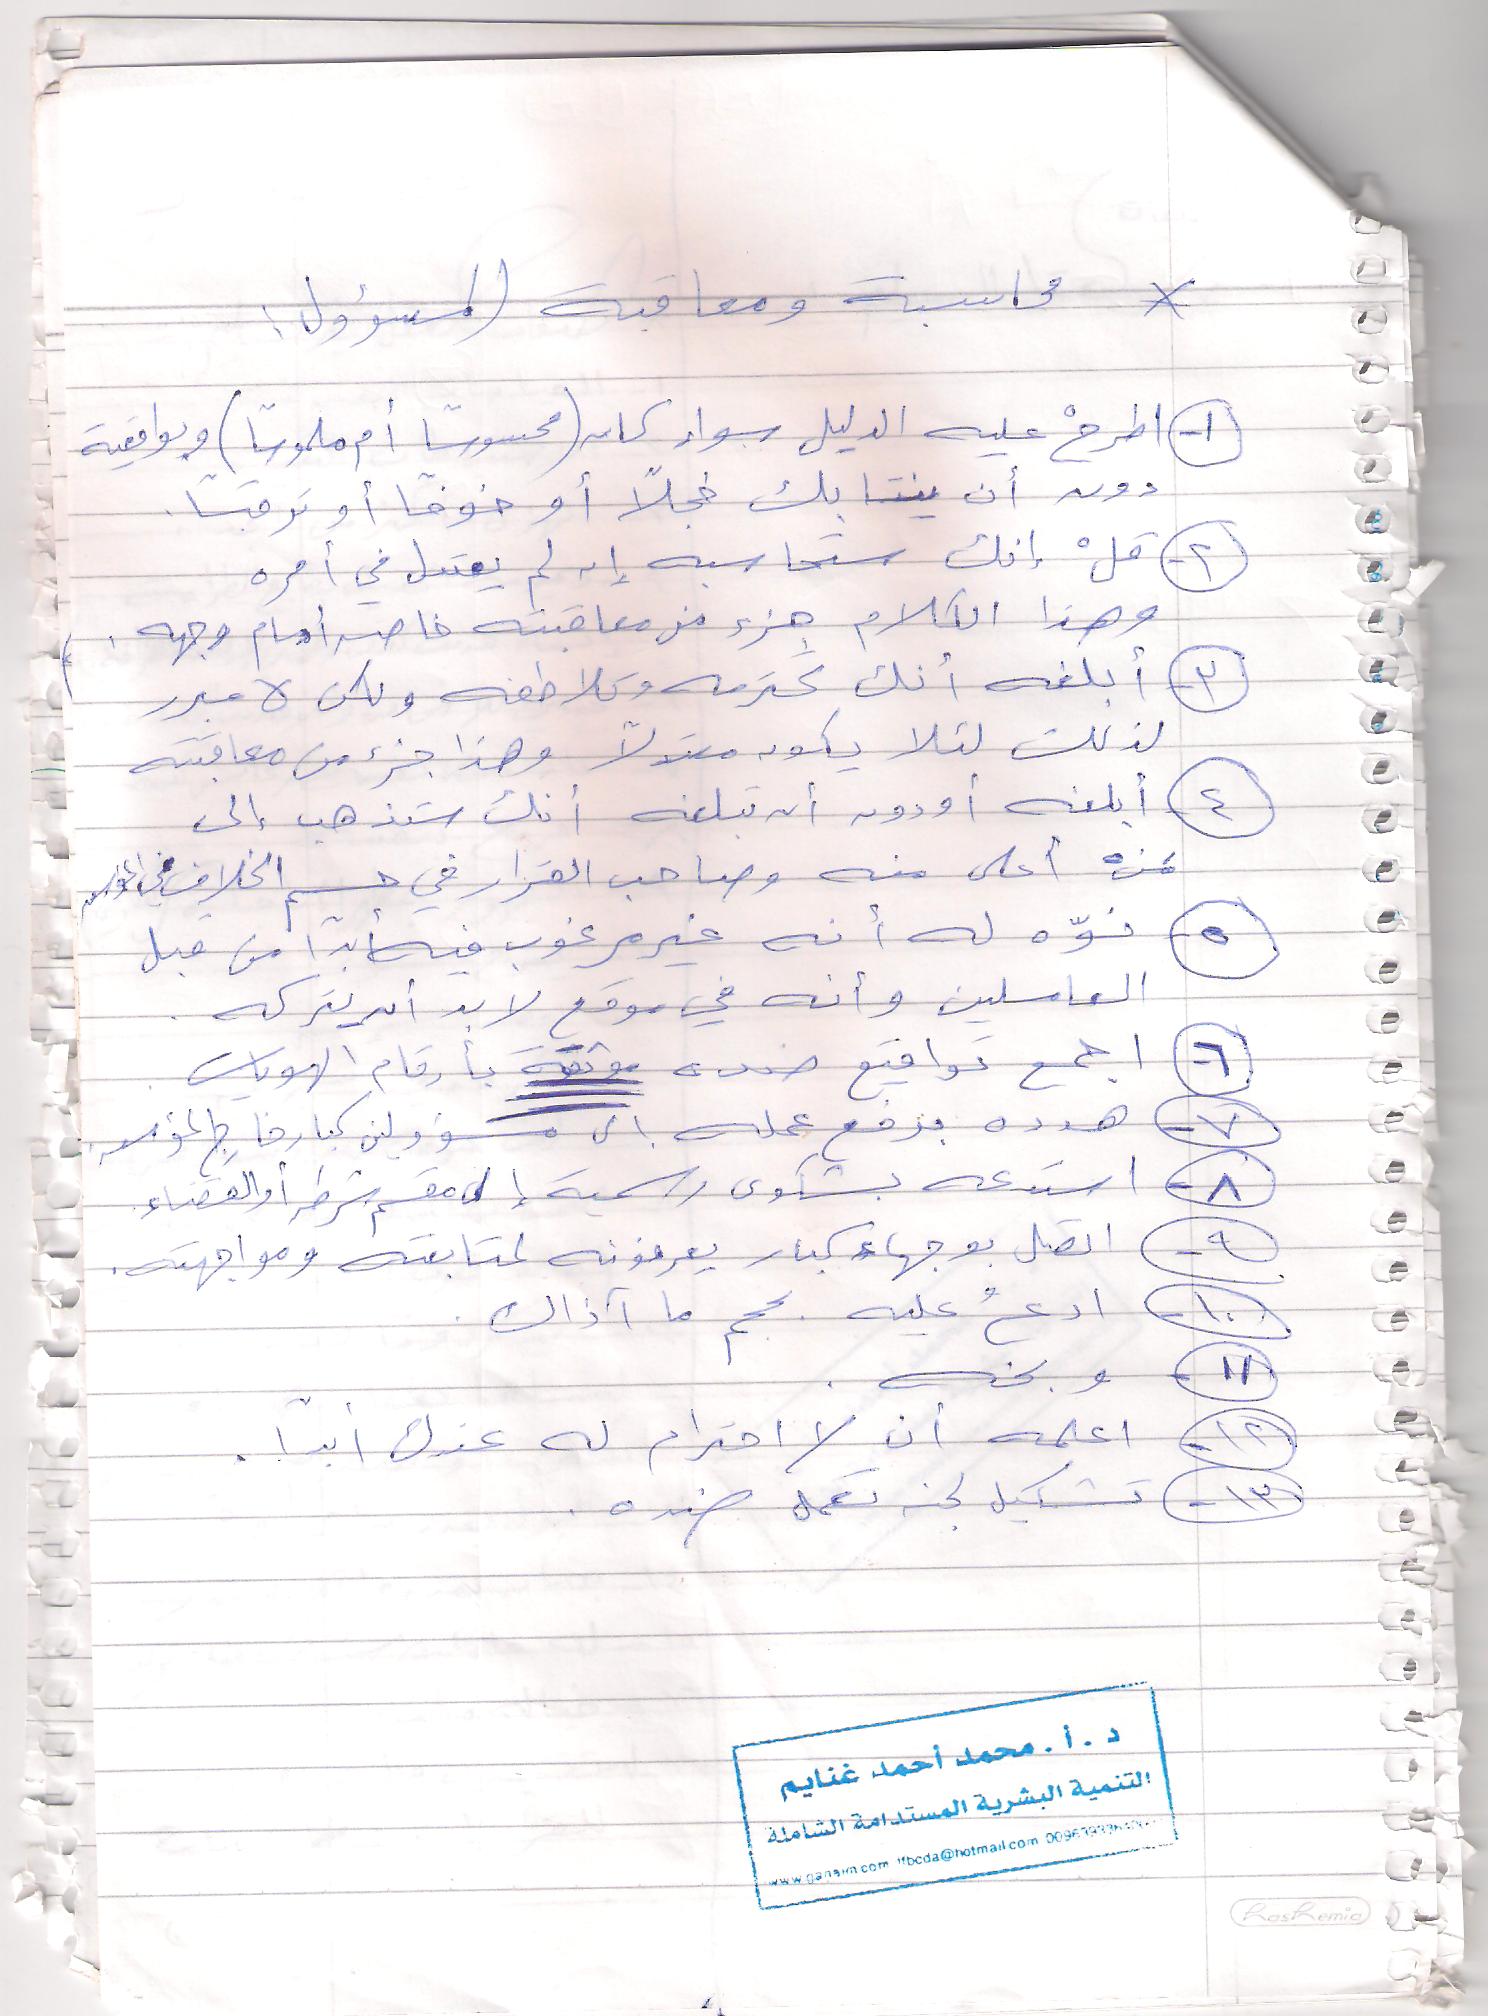 * محاسبة ومعاقبة المسؤول:
١- اطرحْ عليه الدليل سواء كان (محسوسًا أم ملموسًا) وبواقعية
دون أن ينتابك خجلًا أو خوفًا أو ترقبًا.
٢- قلْ إنك ستحاسبه إن لم يعتدل في أمره
وهذا الكلام جزء من معاقبته خاصة أمام وجهه.
٣- أبلغه أنك تحترمه وتلاطفه ولكن لا مبرر
لذلك لئلا يكون مبتذلًا وهذا جزء من معاقبته
٤- أبلغه أو دون أن تبلغه أنك ستذهب إلى
منْ أعلى منه وصاحب القرار في حسم الخلاف في
٥- نوّه له أنه غير مرغوب فيه أبدًا من قبل
العاملين وأنه في موقع لا بد أن يتركه.
٦- اجمع تواقيع ضده موثقة بأرقام الهويات.
٧- هدده برفع عمله إلى مسؤولين كبار خارج المؤسسة.
٨- استدعه بشكوى رسمية إلى مقسم شرطة أو القضاء.
٩- اتصل بوجهاء كبار يعرفونه لمتابعته ومواجهته.
١٠- ادعُ عليه بحجم ما آذاك.
١١- وبخه.
١٢- اعلمه أن لا احترام له عندك أبدًا.
١٣- تشكيل لجنة تعمل ضده.
د.أ. محمد أحمد غنايم
التنمية البشرية المستدامة الشاملة
www.ganaim.com ifbcda@hotmail.com